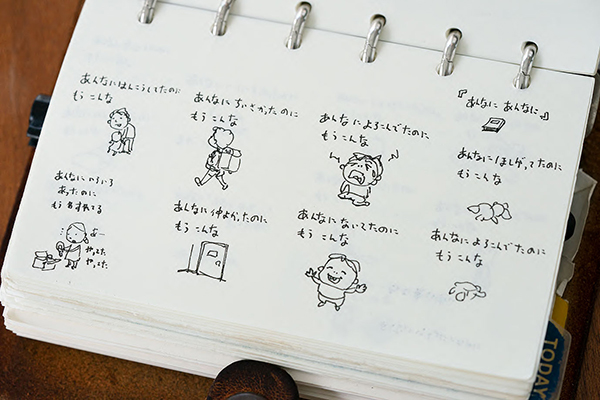 『あんなに あんなに』
あんなに ほしがってたのに
もう こんな
あんなに よろこんでたのに
もう こんな
あんなに よろこんでたのに
もう こんな
あんなに ないてたのに
もう こんな
あんなに ちいさかったのに
もう こんな
あんなに 仲よかったのに
もう こんな
あんなに はんこうしてたのに
もう こんな
あんなに いろいろ
あったのに
もう わすれてる
TODAY